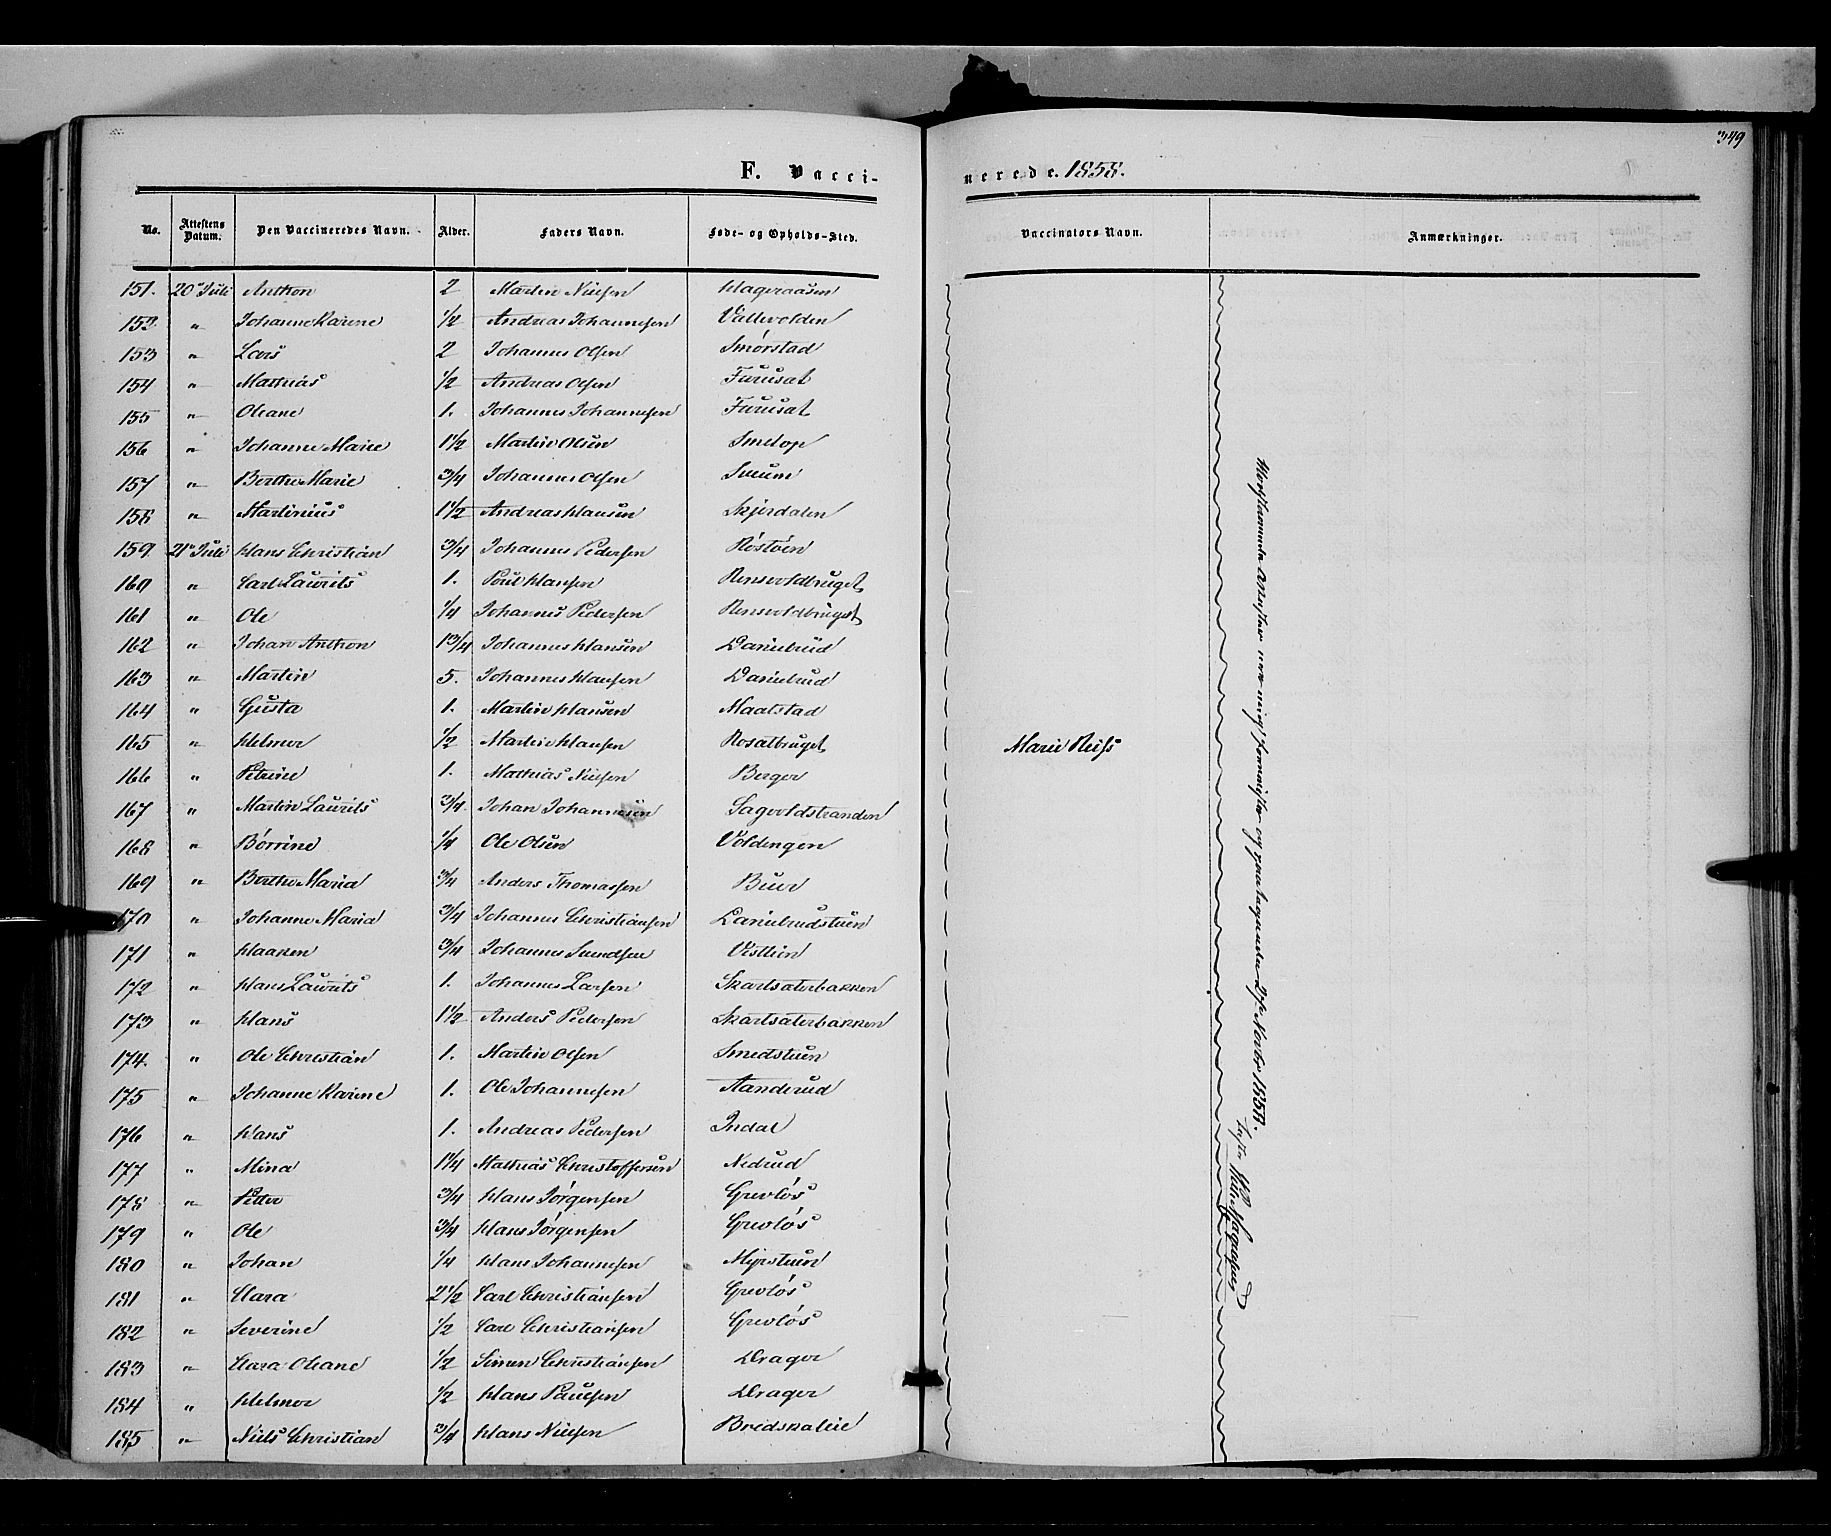 349
F. Vaccinerede. 1858.
No. Attestens Datum. Den Vaccineredes Navn. Alder. Faders Navn. Føde- og Opholds-Sted. Vaccinators Navn. Anmærkninger.
151. 20de Juli Anthon 2 Martin Nielsen Hageraasen
152. " Johanne Karine 1/2 Andreas Johannesen Vallevolden
153 " Lars 2 Johannes Olsen Smørstad
154 " Mathias 1/2 Andreas Olsen Furusat
155 " Oleane 1. Johannes Johannesen Furusat
156 " Johanne Marie 1 1/2 Martin Olsen Smelop
157 " Berthe Marie 3/4 Johannes Olsen Sveum
158 " Martinius 1 1/2 Andreas Hansen Skjerdalen
159. 21de Juli Hans Christian 3/4 Johannes Pedersen Røstøen
160 " Carl Laurits 1. Poul Hansen Rensvoldbruget
161 " Ole 1/4 Johannes Pedersen Rensvoldbruget
162 " Johan Anthon 1 3/4 Johannes Hansen Danielrud
163 " Martin 5. Johannes Hansen Danielrud
164 " Gusta 1. Martin Hansen Maalstad
165 " Helmer 1/2 Martin Hansen Rosatbruget Marie Reiss
166 " Petrine 1. Mathias Nielsen Berger
167 " Martin Laurits 3/4. Johan Johannesen Sagvoldstranden
168 " Børrine 1/4 Ole Olsen Voldengen
169 " Berthe Maria 3/4 Anders Thomassen Buer
170 " Johanne Maria 3/4 Johannes Christiansen Danielrudstuen
171 " Haaken 3/4 Johannes Svendsen Vestlien
172 " Hans Laurits 1. Johannes Larsen Skartsæterbakken
173 " Hans 1 1/2 Anders Pedersen Skartsæterbakken
174. " Ole Christian 1. Martin Olsen Smedstuen
175 " Johanne Karine 1. Ole Johannesen Aanderud
176 " Hans 1. Andreas Pedersen Indal
177 " Mina 1 1/4 Mathias Christoffersen Nedrud
178 " Petter 3/4 Hans Jørgensen Grevløs
179 " Ole 3/4 Hans Jørgensen Grevløs
180 " Johan 1/4 Hans Johannesen Myrstuen
181 " Clara 2 1/2 Carl Christiansen Grevløs
182 " Severine 1/2 Carl Christiansen Grevløs
183 " Clara Oleane 1/2 Simen Christiansen Drager
184 " Helmer 1/2 Hans Paulsen Drager
185 " Niels Christian 3/4 Hans Nielsen Bredskalie